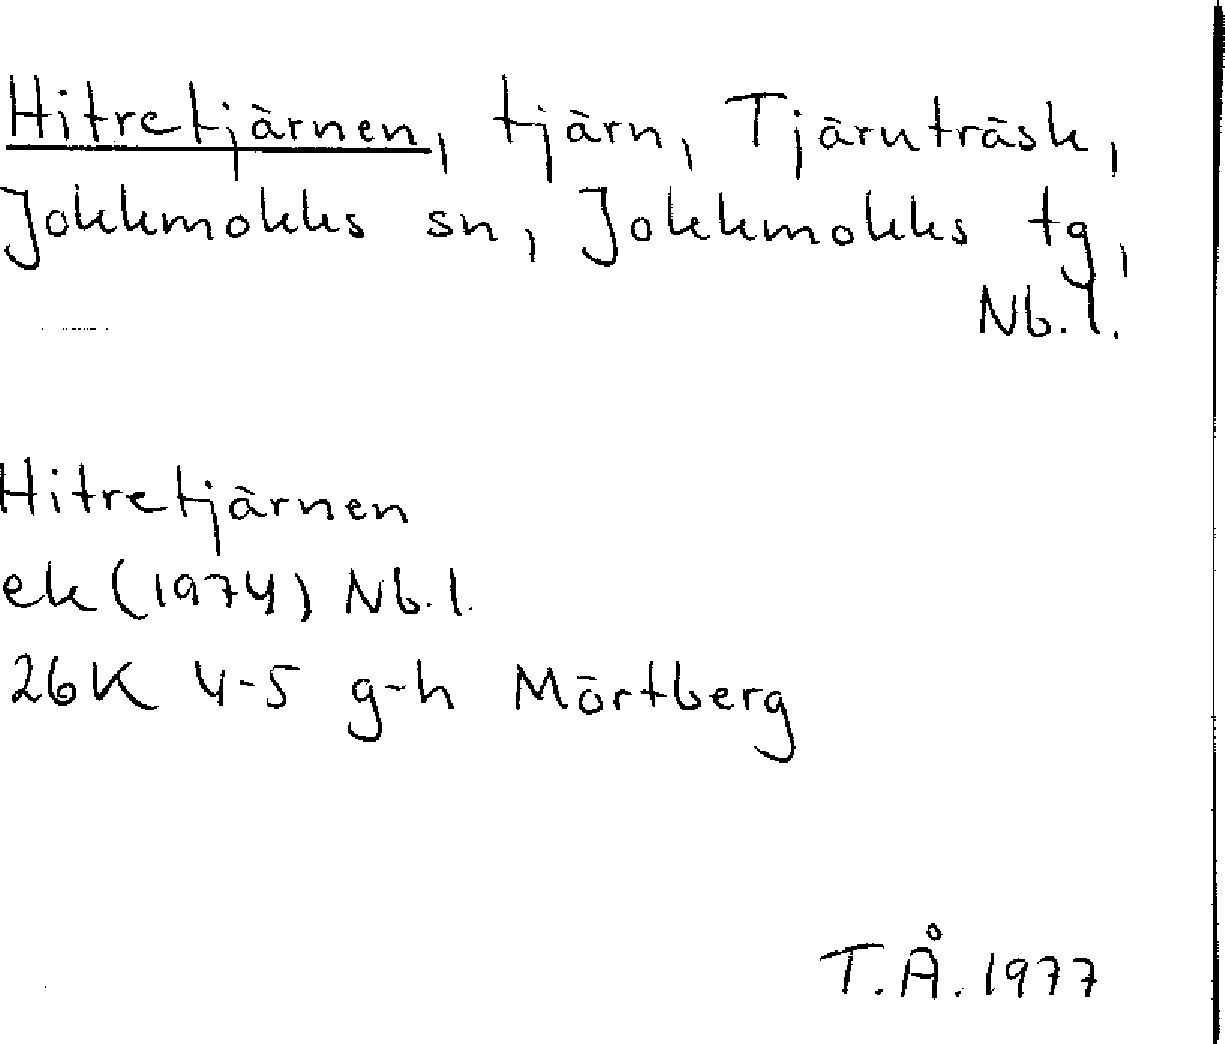 Hitretjärnen, tjärn, Tjärnträsk,
Jokkmokks sn, Jokkmokks tg,
Nb.l.
Hitretjärnen
ek (1974) Nb.l.
26K 4-5 g-h Mörtberg
T.Å. 1977